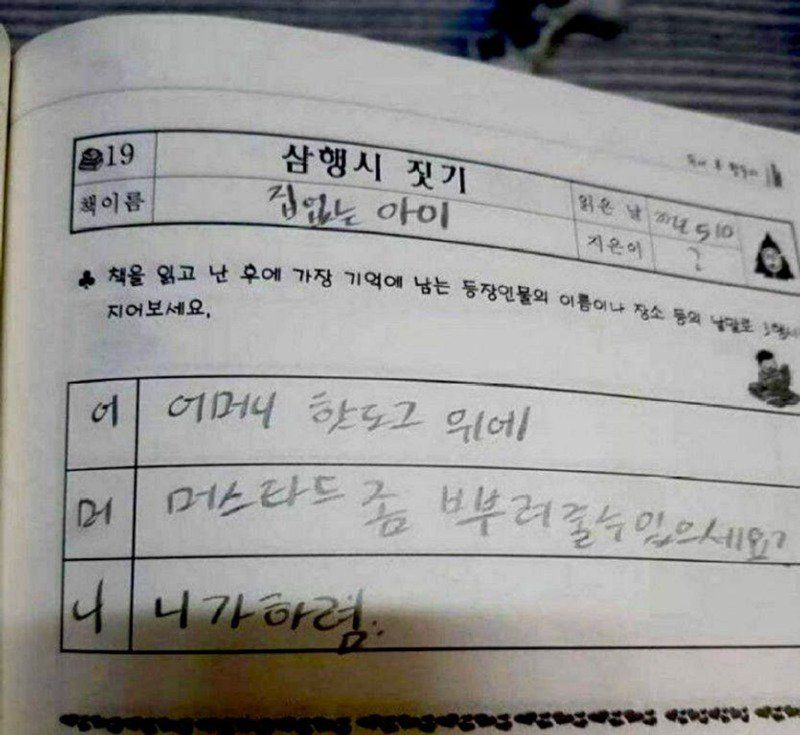 19 삼행시 짓기
책이름 집없는 아이 읽은 날 5 10
지은이 ?
♣ 책을 읽고 난 후에 가장 기억에 남는 등장인물의 이름이나 장소 등의 낱말로 3행시
지어보세요.
어 어머니 핫도그 위에
머 머스타드 좀 뿌부려줄수 있으세요?
니 니가하렴.